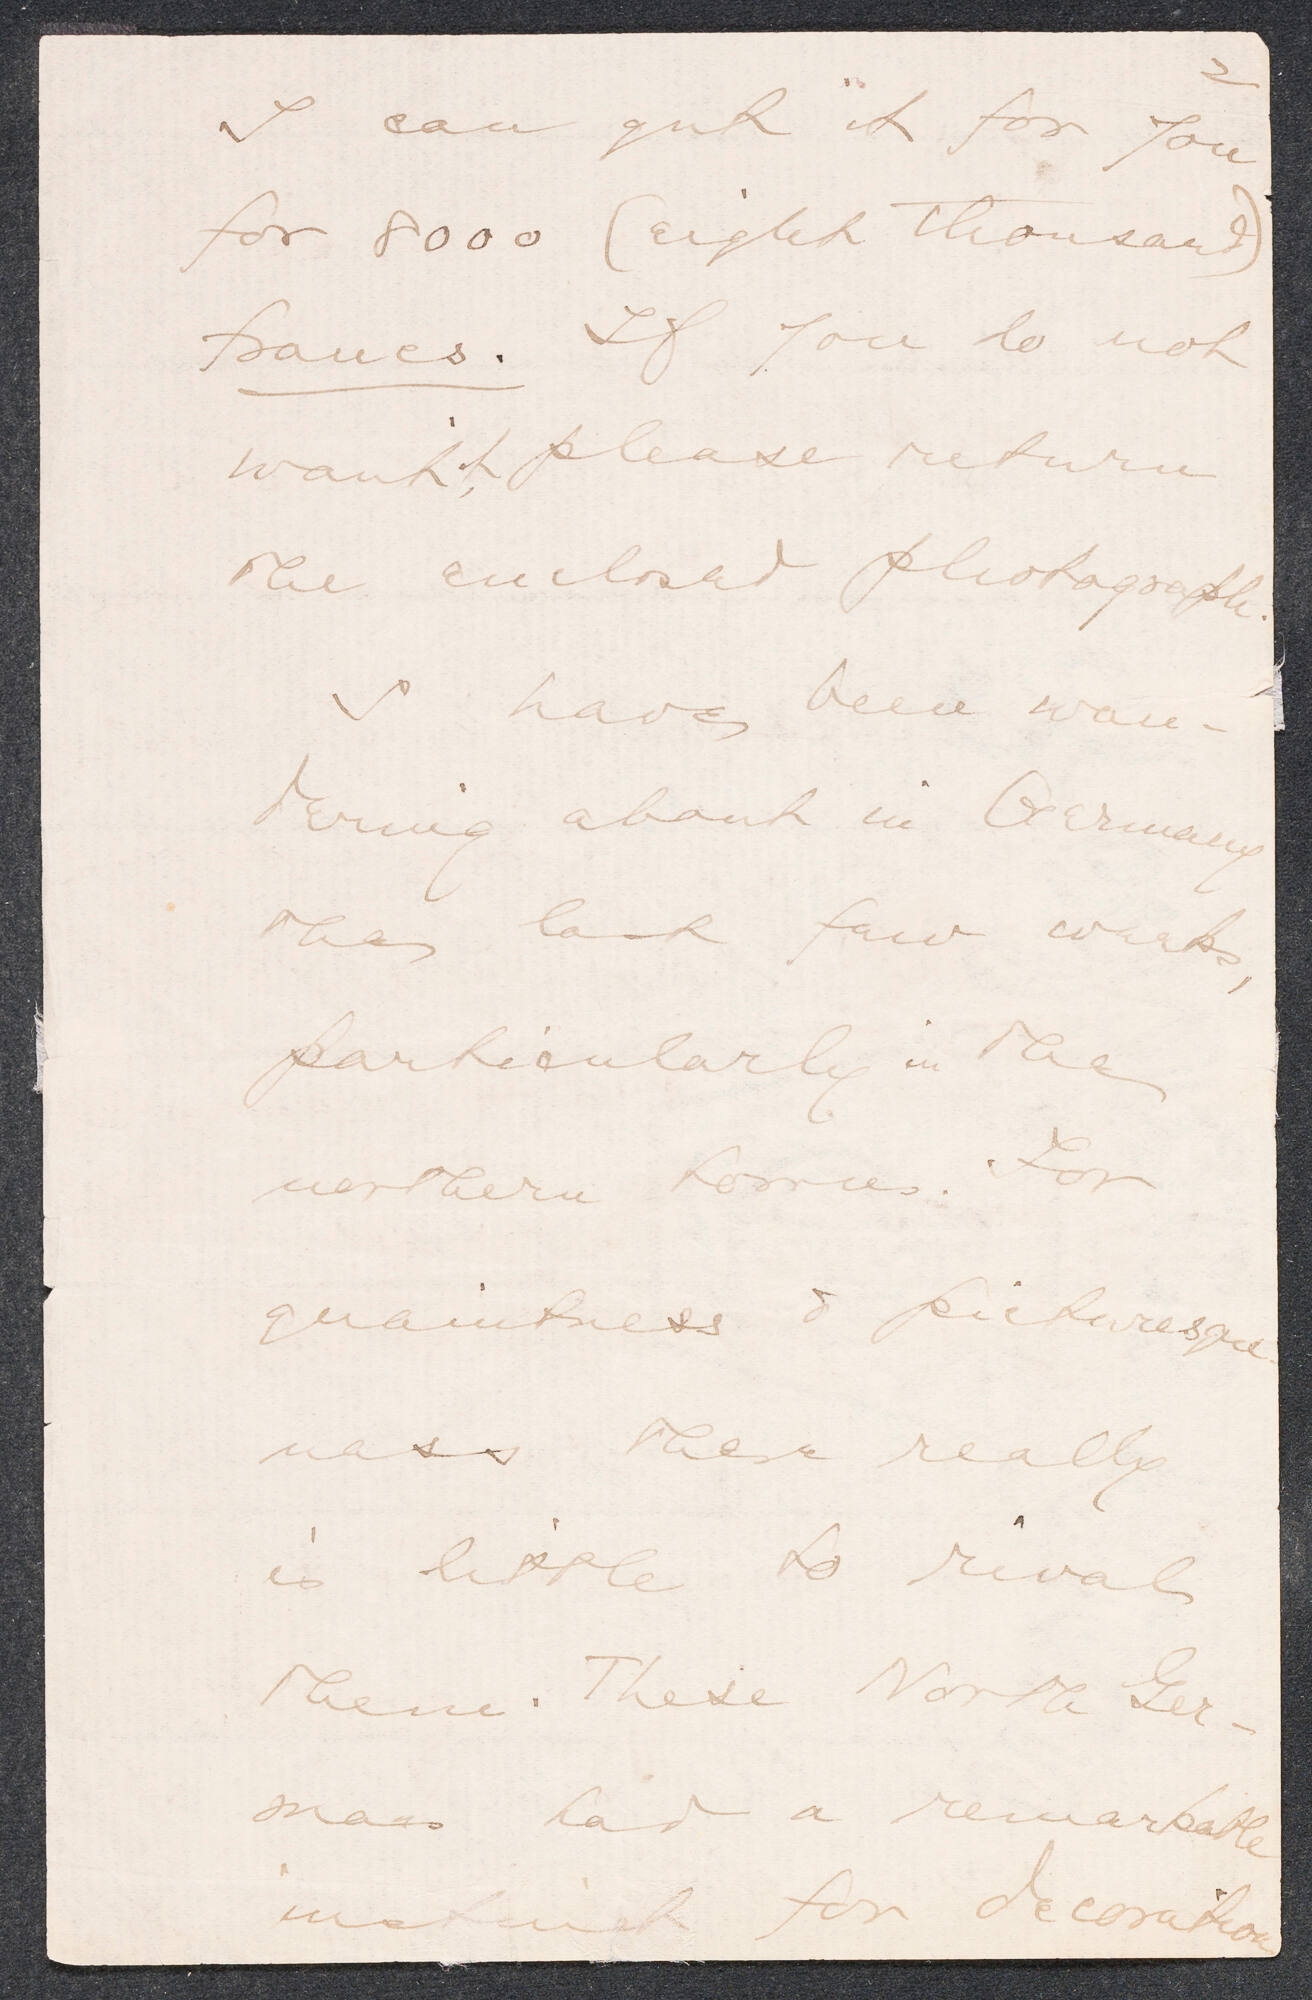 2
I can get it for you
for 8000 (eight thousand)
francs. If you do not
want it, please return
the enclosed photograph.
I have been wan-
dering about in Germany
the last few weeks,
particularly in the
northern towns. For
quaintness & picturesque-
ness there really
is little to rival
them. These North Ger-
mans had a remarkable
instinct for decoration